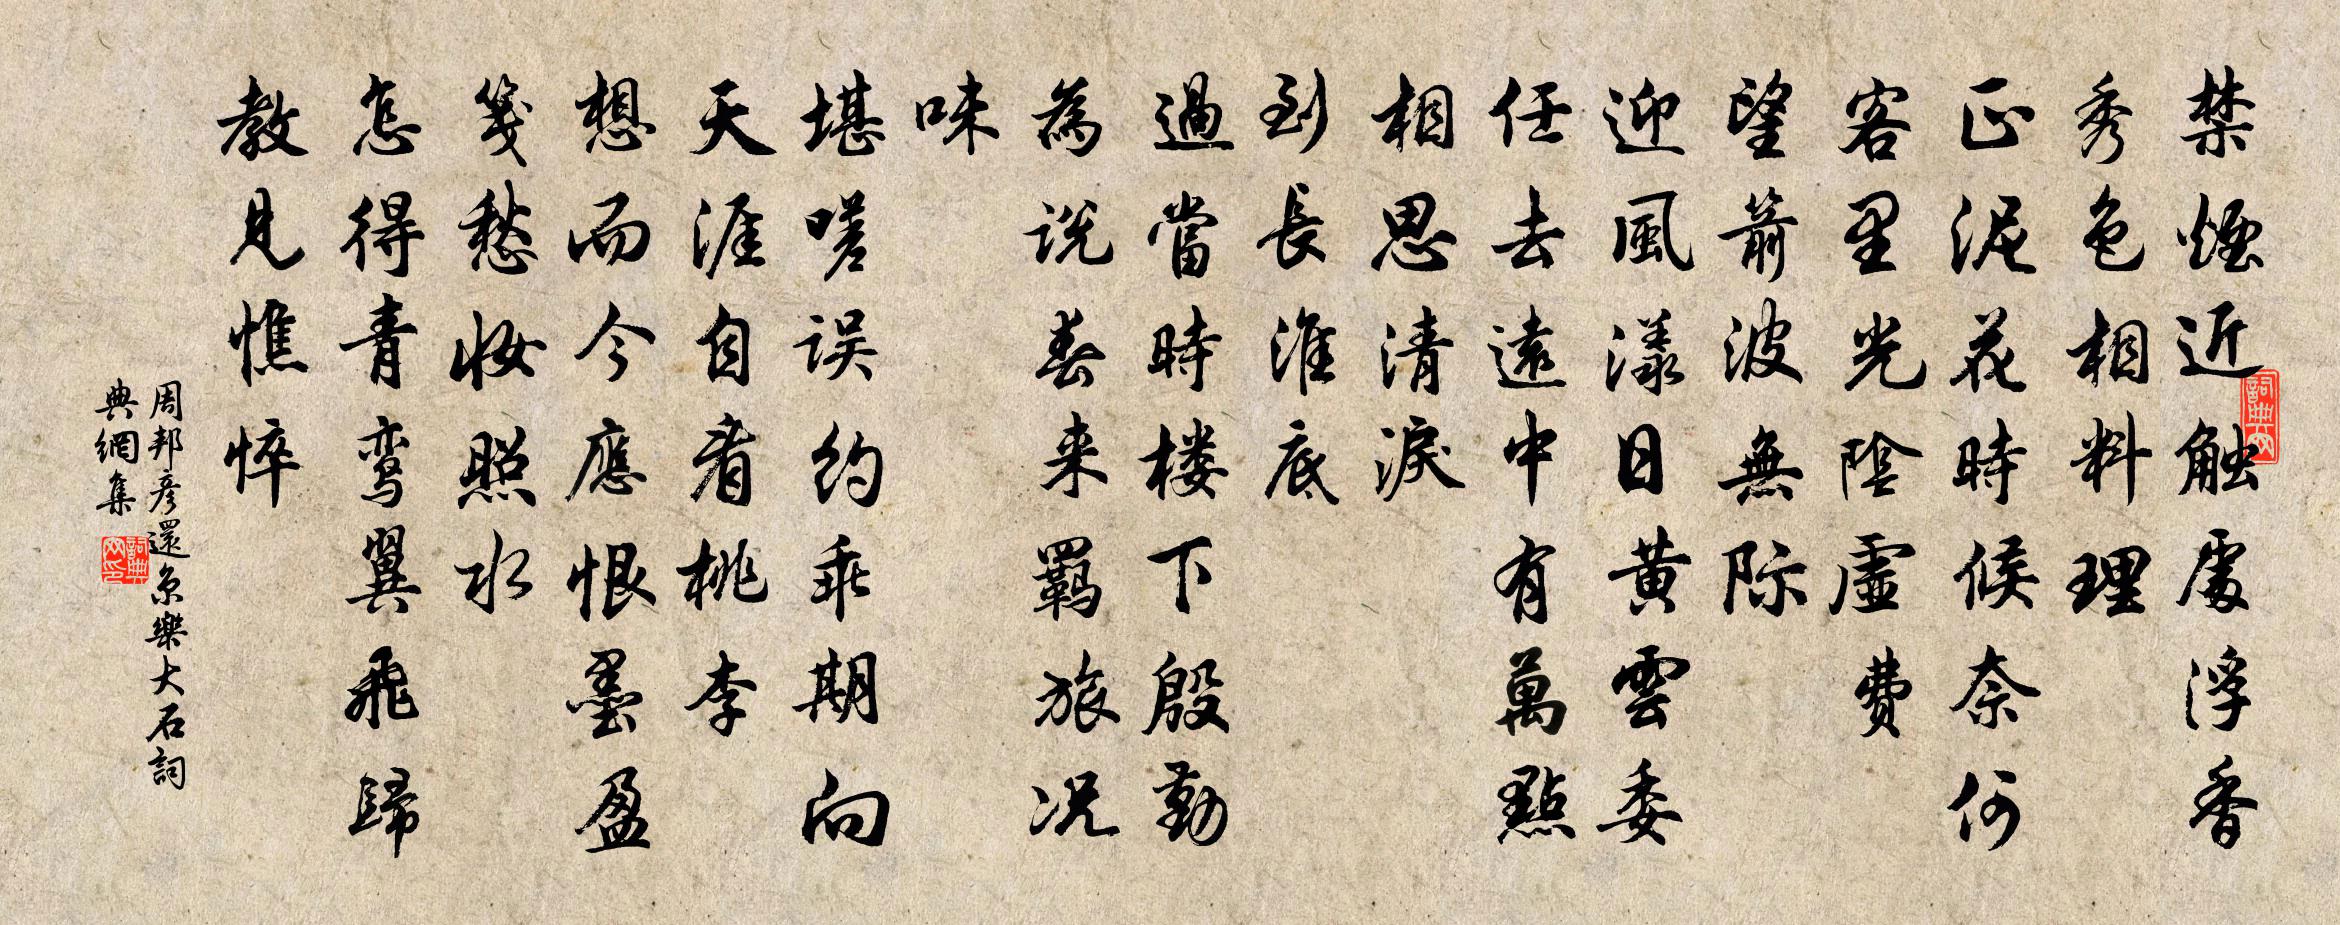 禁煙近触處浮香
秀色相料理
正泥花時候奈何
客里光陰虛費
望箭波無际
迎風漾日黃雲委
任去遠中有萬點
相思清淚
到長淮底
過當時楼下殷勤
為説春来羈旅况
味
堪嗟误约乖期向
天涯自看桃李
想而今應恨墨盈
箋愁妝照水
怎得青鸾翼飛歸
教見憔悴
周邦彥還京樂大石詞
典網集